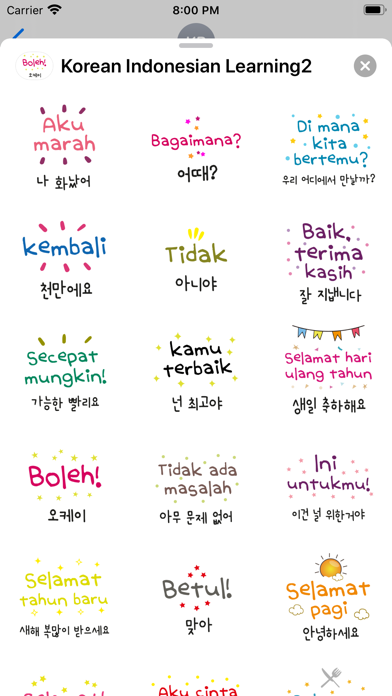 Carrier 8:00 PM
Boleh!
오케이
Korean Indonesian Learning2
Aku
marah
나 화났어
Bagaimana?
어때?
Di mana
kita
bertemu?
우리 어디에서 만날까?
kembali
천만에요
Tidak
아니야
Baik,
terima
kasih
잘 지냅니다
Secepat
mungkin!
가능한 빨리요
kamu
terbaik
넌 최고야
Selamat hari
ulang tahun
생일 축하해요
Boleh!
오케이
Tidak ada
masalah
아무 문제 없어
Ini
untukmu!
이건 널 위한거야
Selamat
tahun baru
새해 복많이 받으세요
Betul!
맞아
Selamat
pagi
안녕하세요
Aku cinta